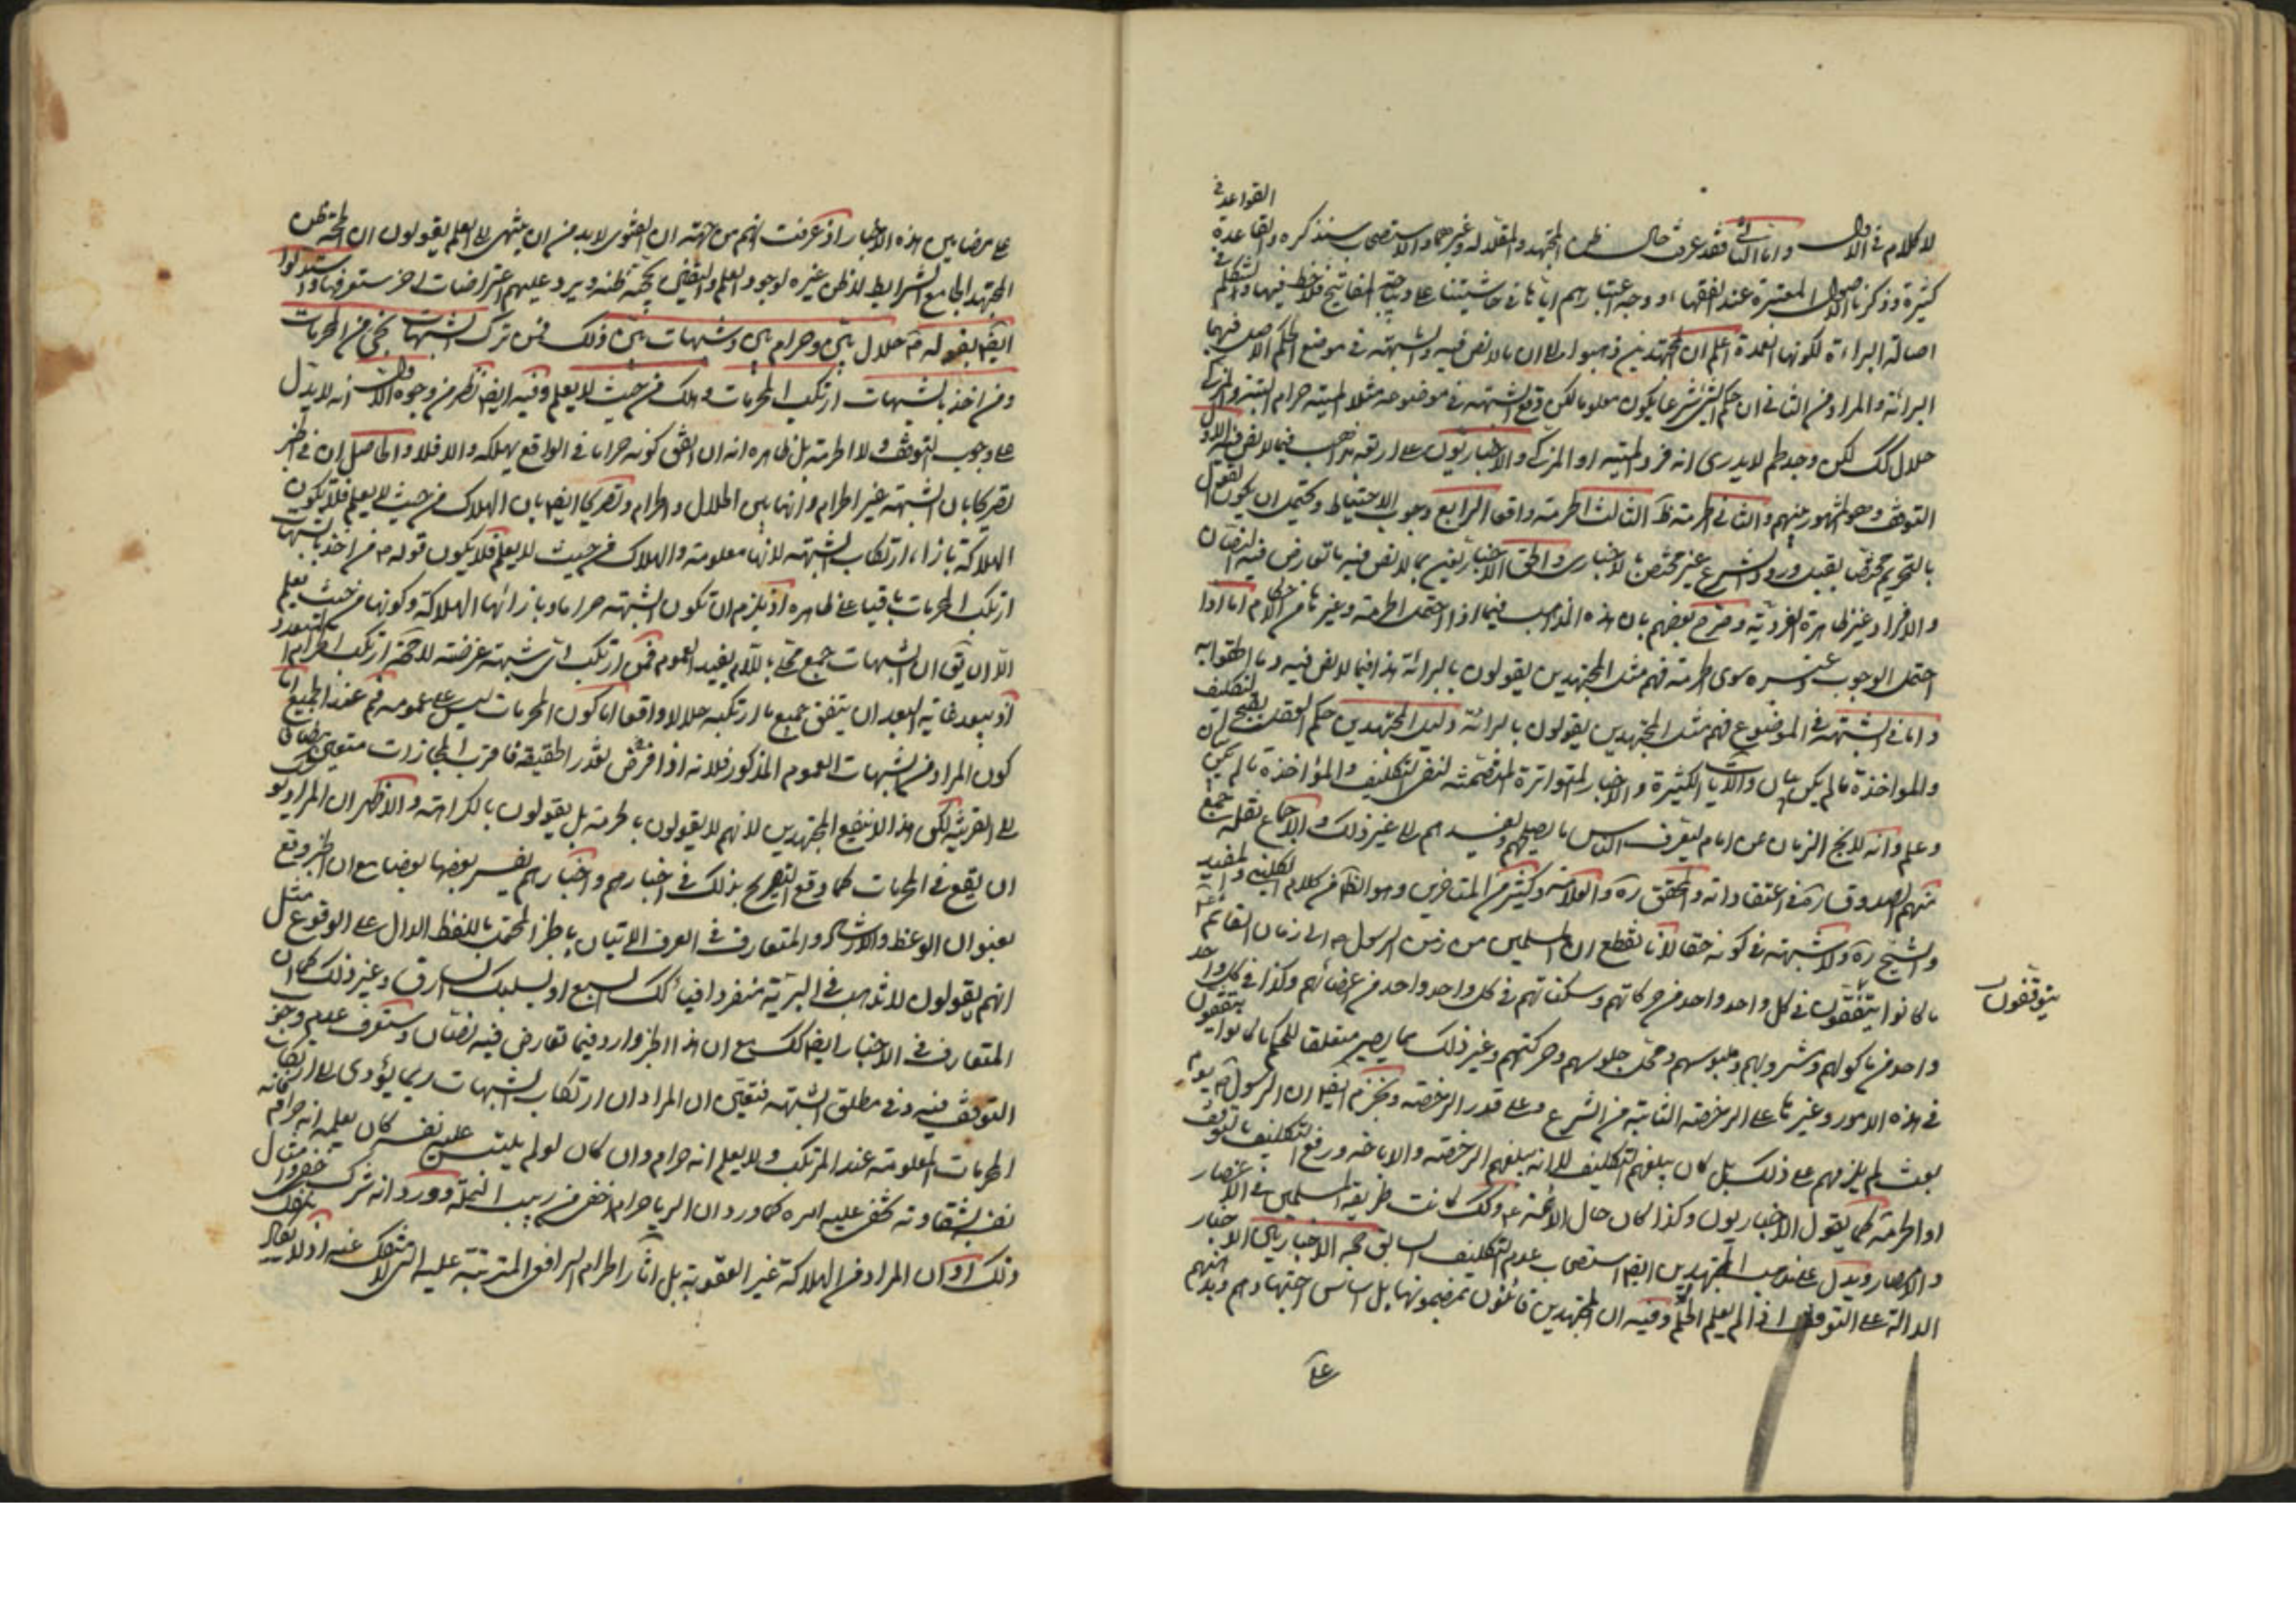 القواعد في
لا كلام في الاول واما الثاني فقد عرفت حال ظن المجتهد والمقلد له وغيرهما والاستصحاب سنذكره والقاعدة
كثيرة وذكرنا الاصول المعتبرة عند الفقهاء ووجه اعتبارهم اياها في حاشيتنا على ديباجة المفاتيح فلاحظ فيها ولنتكلم في
اصالة البراءة لكونها العمدة اعلم ان المجتهدين ذهبوا الى ان ما لا نص فيه والشبهة في موضع الحكم الاصل فيهما
البرائة والمراد من الثاني ان حكم الشيء شرعا يكون معلوما لكن وقع الشبهة في موضوعه مثلا الميتة حرام البتة والمزكى
حلال كك لكن وجد لحم لا يدرى انه فرد الميتة او المزكى والاخباريون على اربعة مذاهب فيما لا نص فيه الاول
التوقف وهو المشهور بينهم والثاني الحرمة ظ الثالث الحرمة واقعا الرابع وجوب الاحتياط ويحتمل ان يكون القول
بالتحريم مختصا بقيد ورود الشرع غير مختص بالاخباري والحق الاخباريين بما لا نص فيه ما تعارض فيه النصان
والافراد غير ظاهرة الفردية وصرح بعضهم بان هذه المذاهب فيما اذا احتمل الحرمة وغيرها من الاحكام اما اذا
احتمل الوجوب وغيره سوى الحرمة فهم مثل المجتهدين يقولون بالبرائة هذا فيما لا نص فيه وما الحقوا به
واما في الشبهة في الموضوع فهم مثل المجتهدين يقولون بالبرائة دليل المجتهدين حكم العقل بقبح التكليف
والمواخذة ما لم يكن بيان والايات الكثيرة والاخبار المتواترة المتضمنة لنفي التكليف والمؤاخذة ما لم يكن بيان
وعلم وانه لا يخ الزمان عن امام ليعرف الناس ما يصلحهم ويفسدهم الى غير ذلك والاجماع نقله جمع
منهم الصدوق ره في اعتقاداته والمحقق ره والعلامة وكثير من المتاخرين وهو الظ من كلام الكليني والمفيد
والشيخ ره ولا شبهة في كونه حقا لانا نقطع ان المسلمين من زمن الرسول ص الى زمان القائم ع
ما كانوا يتفقهون في كل واحد واحد من حركاتهم وسكناتهم في كل واحد واحد من اعضائهم وكذا في كل واحد
يتوقفون
واحد من ماكولهم ومشروبهم وملبوسهم ومحل جلوسهم وحركتهم وغير ذلك مما يصير متعلقا للحكم ما كانوا يتفقهون
في هذه الامور وغيرها على الرخصة الثابتة من الشرع وعلى قدر الرخصة ونجزم ايضا ان الرسول ص يوم
بعث لم يلزمهم على ذلك بل كان يبلغهم التكليف لا انه يبلغهم الرخصة والاباحة ورفع التكليف بالتوقف
او الحرمة كما يقول الاخباريون وكذا كان حال الائمة ع وكك كانت طريقة المسلمين في الاعصار
والامصار ويدل على مذهب المجتهدين ايضا استصحاب عدم التكليف السابق حجة الاخباريين الاخبار
الدالة على التوقف اذا لم يعلم الحكم وفيه ان المجتهدين قائلون بمضمونها بل اساس اجتهادهم وبدئهم
على
على مضامين هذه الاخبار اذ عرفت انهم من جهة ان الفتوى لا بد من ان ينتهي الى العلم يقولون ان الحجة ظن
المجتهد الجامع للشرايط لا ظن غيره لوجود العلم واليقين بحجية ظنه ويرد عليهم اعتراضات اخر ستعرفها واستدلوا
ايضا بقوله ص حلال بين وحرام بين وشبهات بين ذلك فمن ترك الشبهات نجى من المحرمات
ومن اخذ بالشبهات ارتكب المحرمات وهلك من حيث لا يعلم وفيه ايضا نظر من وجوه الاول انه لا يدل
على وجوب التوقف ولا الحرمة بل ظاهره انه ان اتفق كونه حراما في الواقع يهلكه والا فلا والحاصل ان في الخبر
تصريحا بان الشبهة غير الحرام وانها بين الحلال والحرام وتصريحا ايضا بان الهلاك من حيث لا يعلم فلا يكون
الهلاكة بازاء ارتكاب الشبهة لانها معلومة والهلاك من حيث لا يعلم فلا يكون قوله ص من اخذ بالشبهات
ارتكب المحرمات باقيا على ظاهره اذ يلزم ان تكون الشبهة حراما وبازائها الهلاكة وكونها من حيث يعلم
الا ان يق ان الشبهات جمع محلى باللام يفيد العموم فمن ارتكب اي شبهة عرضته لا محة ارتكب الحرام
اذ يبعد غاية البعد ان يتفق جميع ما ارتكبه حلالا واقعا اما كون المحرمات ليس على عمومه فم عند الجميع اما
كون المراد من الشبهات العموم المذكور فلانه اذا فرض تعذر الحقيقة فاقرب المجازات متعين
الى القرينة لكن هذا لا ينفع المجتهدين لانهم لا يقولون بالحرمة بل يقولون بالكراهة والاظهر ان المراد هو
ان يقع في المحرمات كما وقع التصريح بذلك في اخبارهم واخبارهم يفسر بعضها بعضا مع ان الخبر وقع
بعنوان الوعظ والارشاد والمتعارف في العرف الاتيان بالخبر المحتمل باللفظ الدال على الوقوع مثل
انهم يقولون لا تذهب في البرية منفردا فياكلك السبع او يسلبك السارق وغير ذلك كما ان
المتعارف في الاخبار ايضا كك مع ان هذا الخبر وارد فيما تعارض فيه نصان وستعرف عدم وجوب
التوقف فيه وفي مطلق الشبهة فتعين ان المراد ان ارتكاب الشبهات ربما يؤدى الى ارتكاب
المحرمات المعلومة عند المرتكب ولا يعلم انه حرام وان كان لو لم يلبس عليه نفسه كان يعلم انه حرام
نعم لشقاوته يخفى عليه امره كما ورد ان الريا حرام اخفى من دبيب النملة وورد انه شرك خفي وامثال
ذلك او ان المراد من الهلاكة غير العقوبة بل اثار الحرام الواقعي المترتبة عليه التي لا تنفك عنه